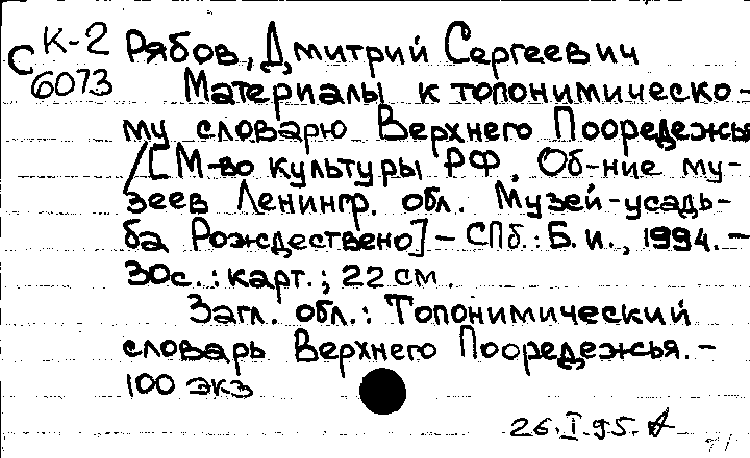 К-2 Рябов, Дмитрий Сергеевич
С 6073 Материалы к топонимическо-
му словарю Верхнего Пооредежья
/[М-во культуры РФ. Об-ние му-
зеев Ленингр. обл. Музей-усадь-
ба Рождествено] - СПб.: Б.и., 1994. -
30с.: карт.; 22 см
Загл. обл.: Топонимический
словарь Верхнего Пооредежья. -
100 экз
26.I.95.